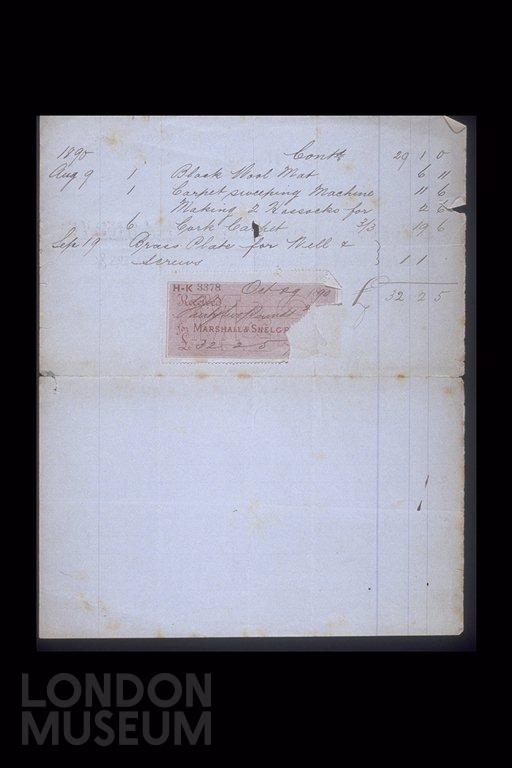 1890 Contd 29 1 0
Aug 9 1 Black Wool Mat 6 11
1 Carpet sweeping Machine 11 6
Making 2 Hassocks for 2 6
6 Cork Carpet 3/3 19 6
Sep 19 Brass Plate for Well &
screws } 1 1
32 2 5
H-K 3378 Oct 29 1890
Received
for MARSHALL & SNELGR
£ 32-2-5
LONDON
MUSEUM